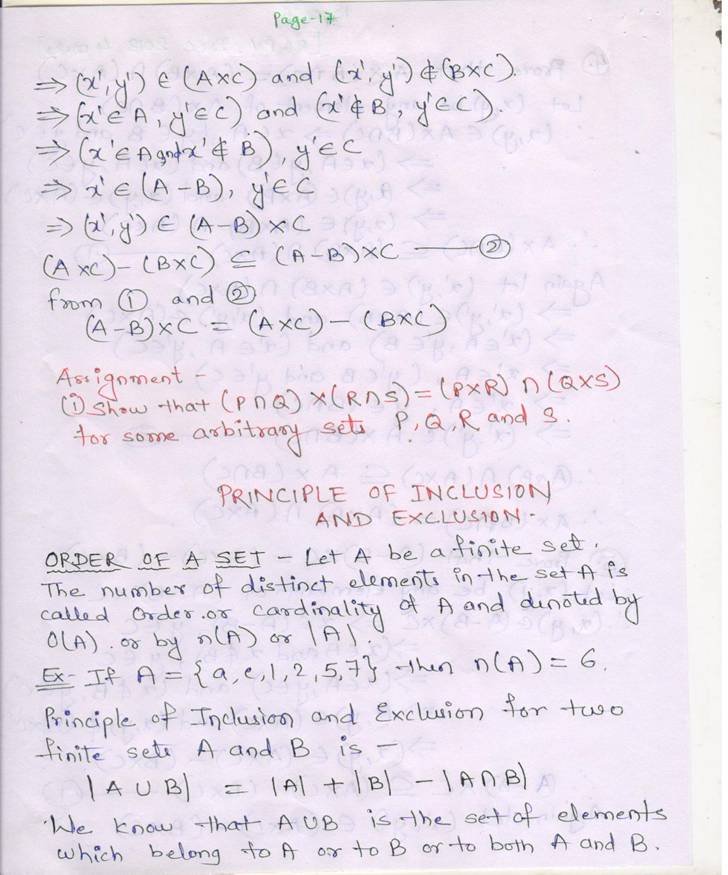 Page-17
⇒ (x', y') ∈ (A×C) and (x', y') ∉ (B×C).
⇒ (x'∈A, y'∈C) and (x'∉B, y'∈C).
⇒ (x'∈A and x'∉B), y'∈C
⇒ x'∈(A-B), y'∈C
⇒ (x', y') ∈ (A-B)×C
(A×C)-(B×C) ⊆ (A-B)×C — ②
from ① and ②
(A-B)×C = (A×C)-(B×C)
Assignment -
(i) Show that (P∩Q)×(R∩S) = (P×R)∩(Q×S)
for some arbitrary sets P, Q, R and S.
PRINCIPLE OF INCLUSION
AND EXCLUSION.
ORDER OF A SET - Let A be a finite set.
The number of distinct elements in the set A is
called order or cardinality of A and denoted by
O(A) or by n(A) or |A|.
Ex- If A = {a, e, 1, 2, 5, 7} then n(A) = 6.
Principle of Inclusion and Exclusion for two
finite sets A and B is -
|A∪B| = |A| + |B| - |A∩B|
We know that A∪B is the set of elements
which belong to A or to B or to both A and B.